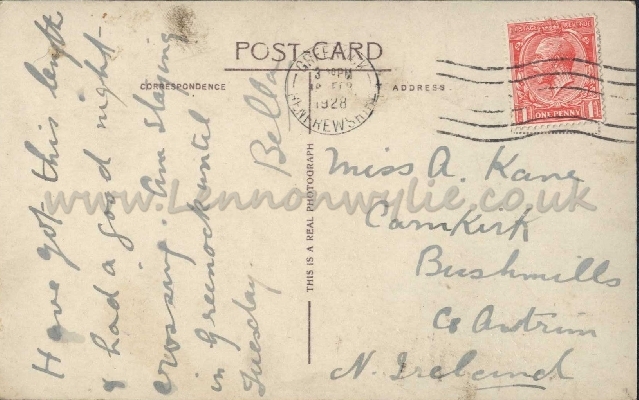 POST-CARD
CORRESPONDENCE
ADDRESS
GREENOCK
3 PM
FEB
1928
RENFREWSHIRE
POSTAGE REVENUE
1 ONE PENNY 1
THIS IS A REAL PHOTOGRAPH
Have got this length
& had a good night
crossing. Am staying
in Greenock until
Tuesday.
Bella
Miss A. Kane
Carnkirk
Bushmills
Co Antrim
N. Ireland
www.Lennonwylie.co.uk